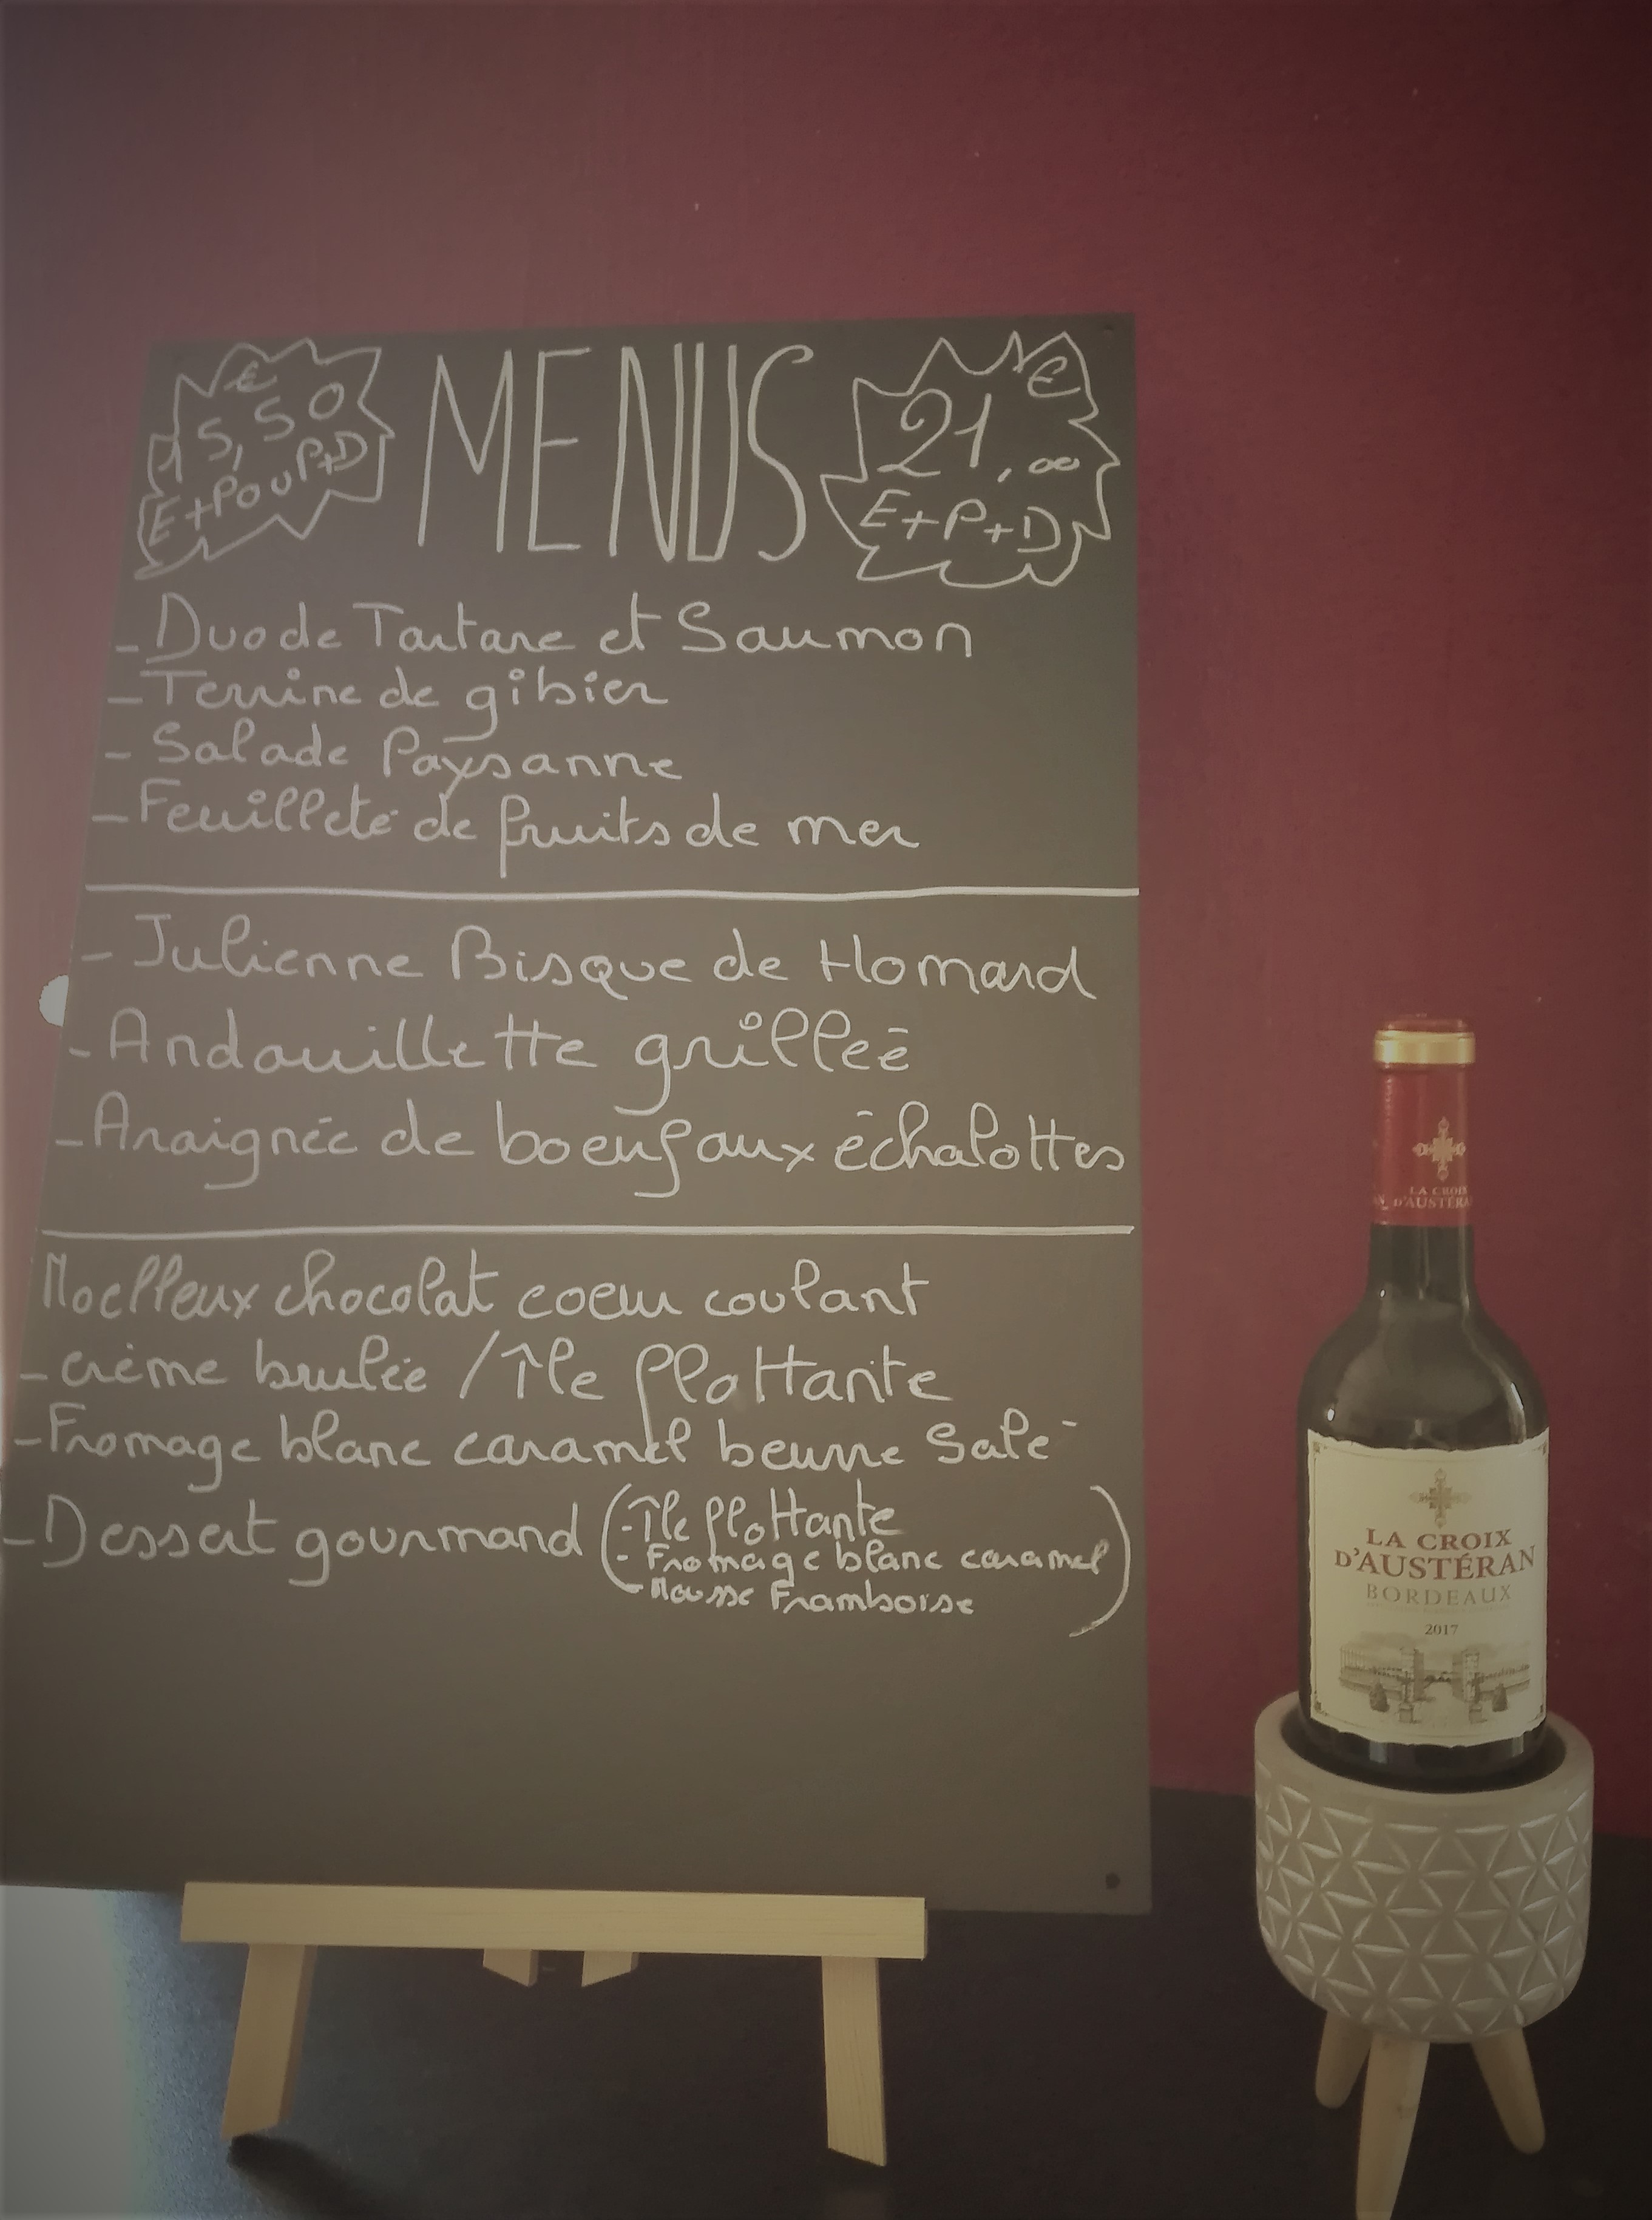 €
15,50
E+P ou P+D
MENUS
€
21,00
E+P+D
- Duo de Tartare et Saumon
- Terrine de gibier
- Salade Paysanne
- Feuilleté de fruits de mer
- Julienne Bisque de Homard
- Andouillette grilleé
- Araignée de boeuf aux échalottes
Moelleux chocolat coeur coulant
- crème brulée / Île flottante
- Fromage blanc caramel beurre Salé
- Dessert gourmand (- Île flottante
- Fromage blanc caramel
- Mousse Framboise)
LA CROIX
D'AUSTÉRA
LA CROIX
D'AUSTÉRAN
BORDEAUX
2017